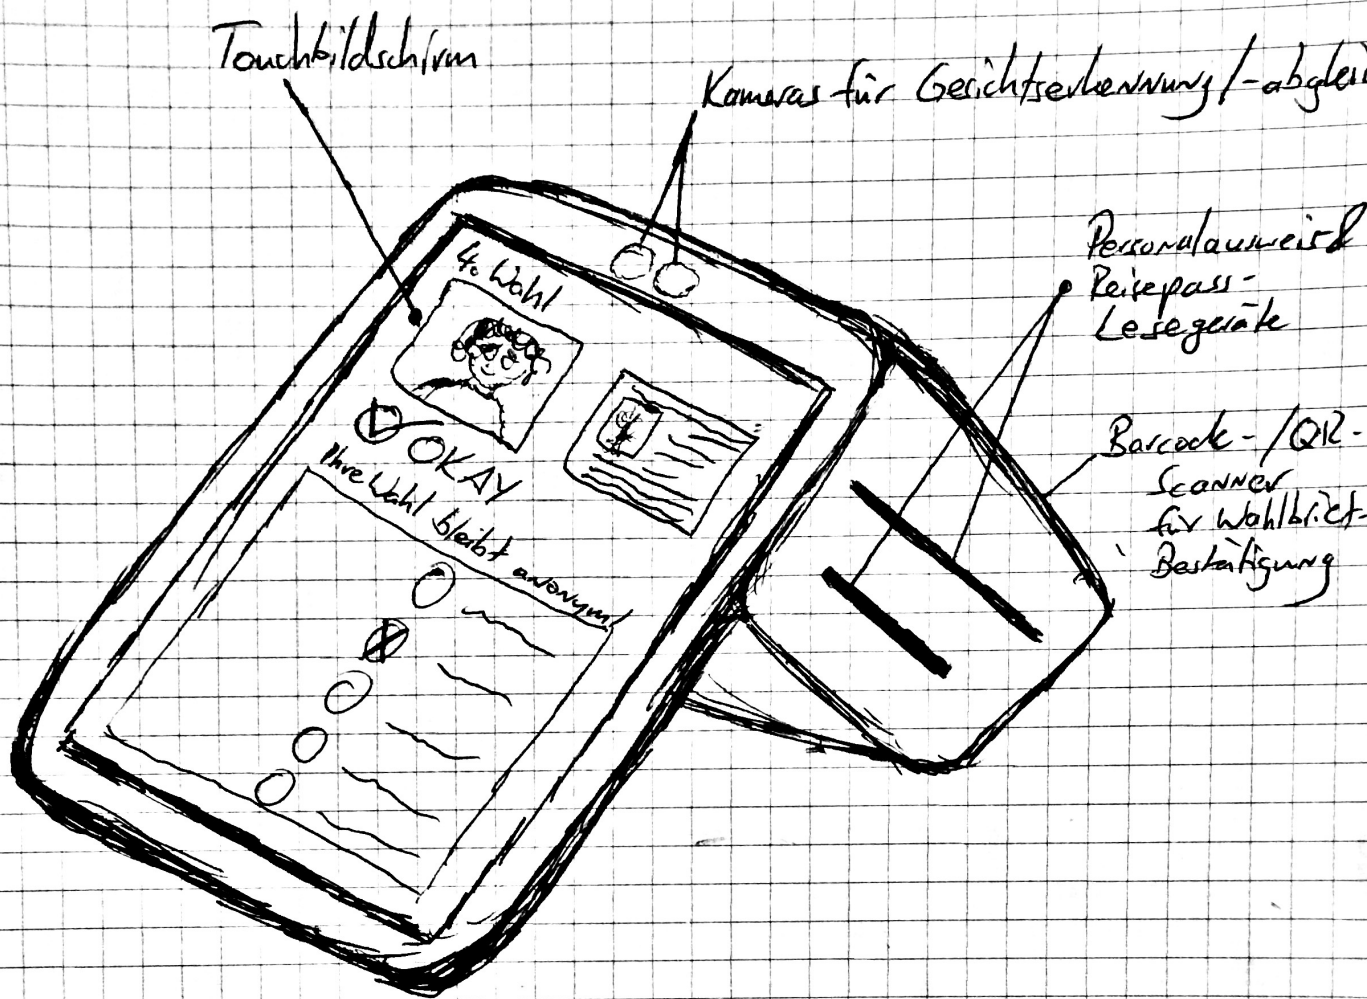 Touchbildschirm
Kameras für Gesichtserkennung/-abglei
Personalausweis &
Reisepass-
Lesegeräte
Barcode-/QR-
Scanner
für Wahlbrief-
Bestätigung
4. Wahl
OKAY
Ihre Wahl bleibt anonym!